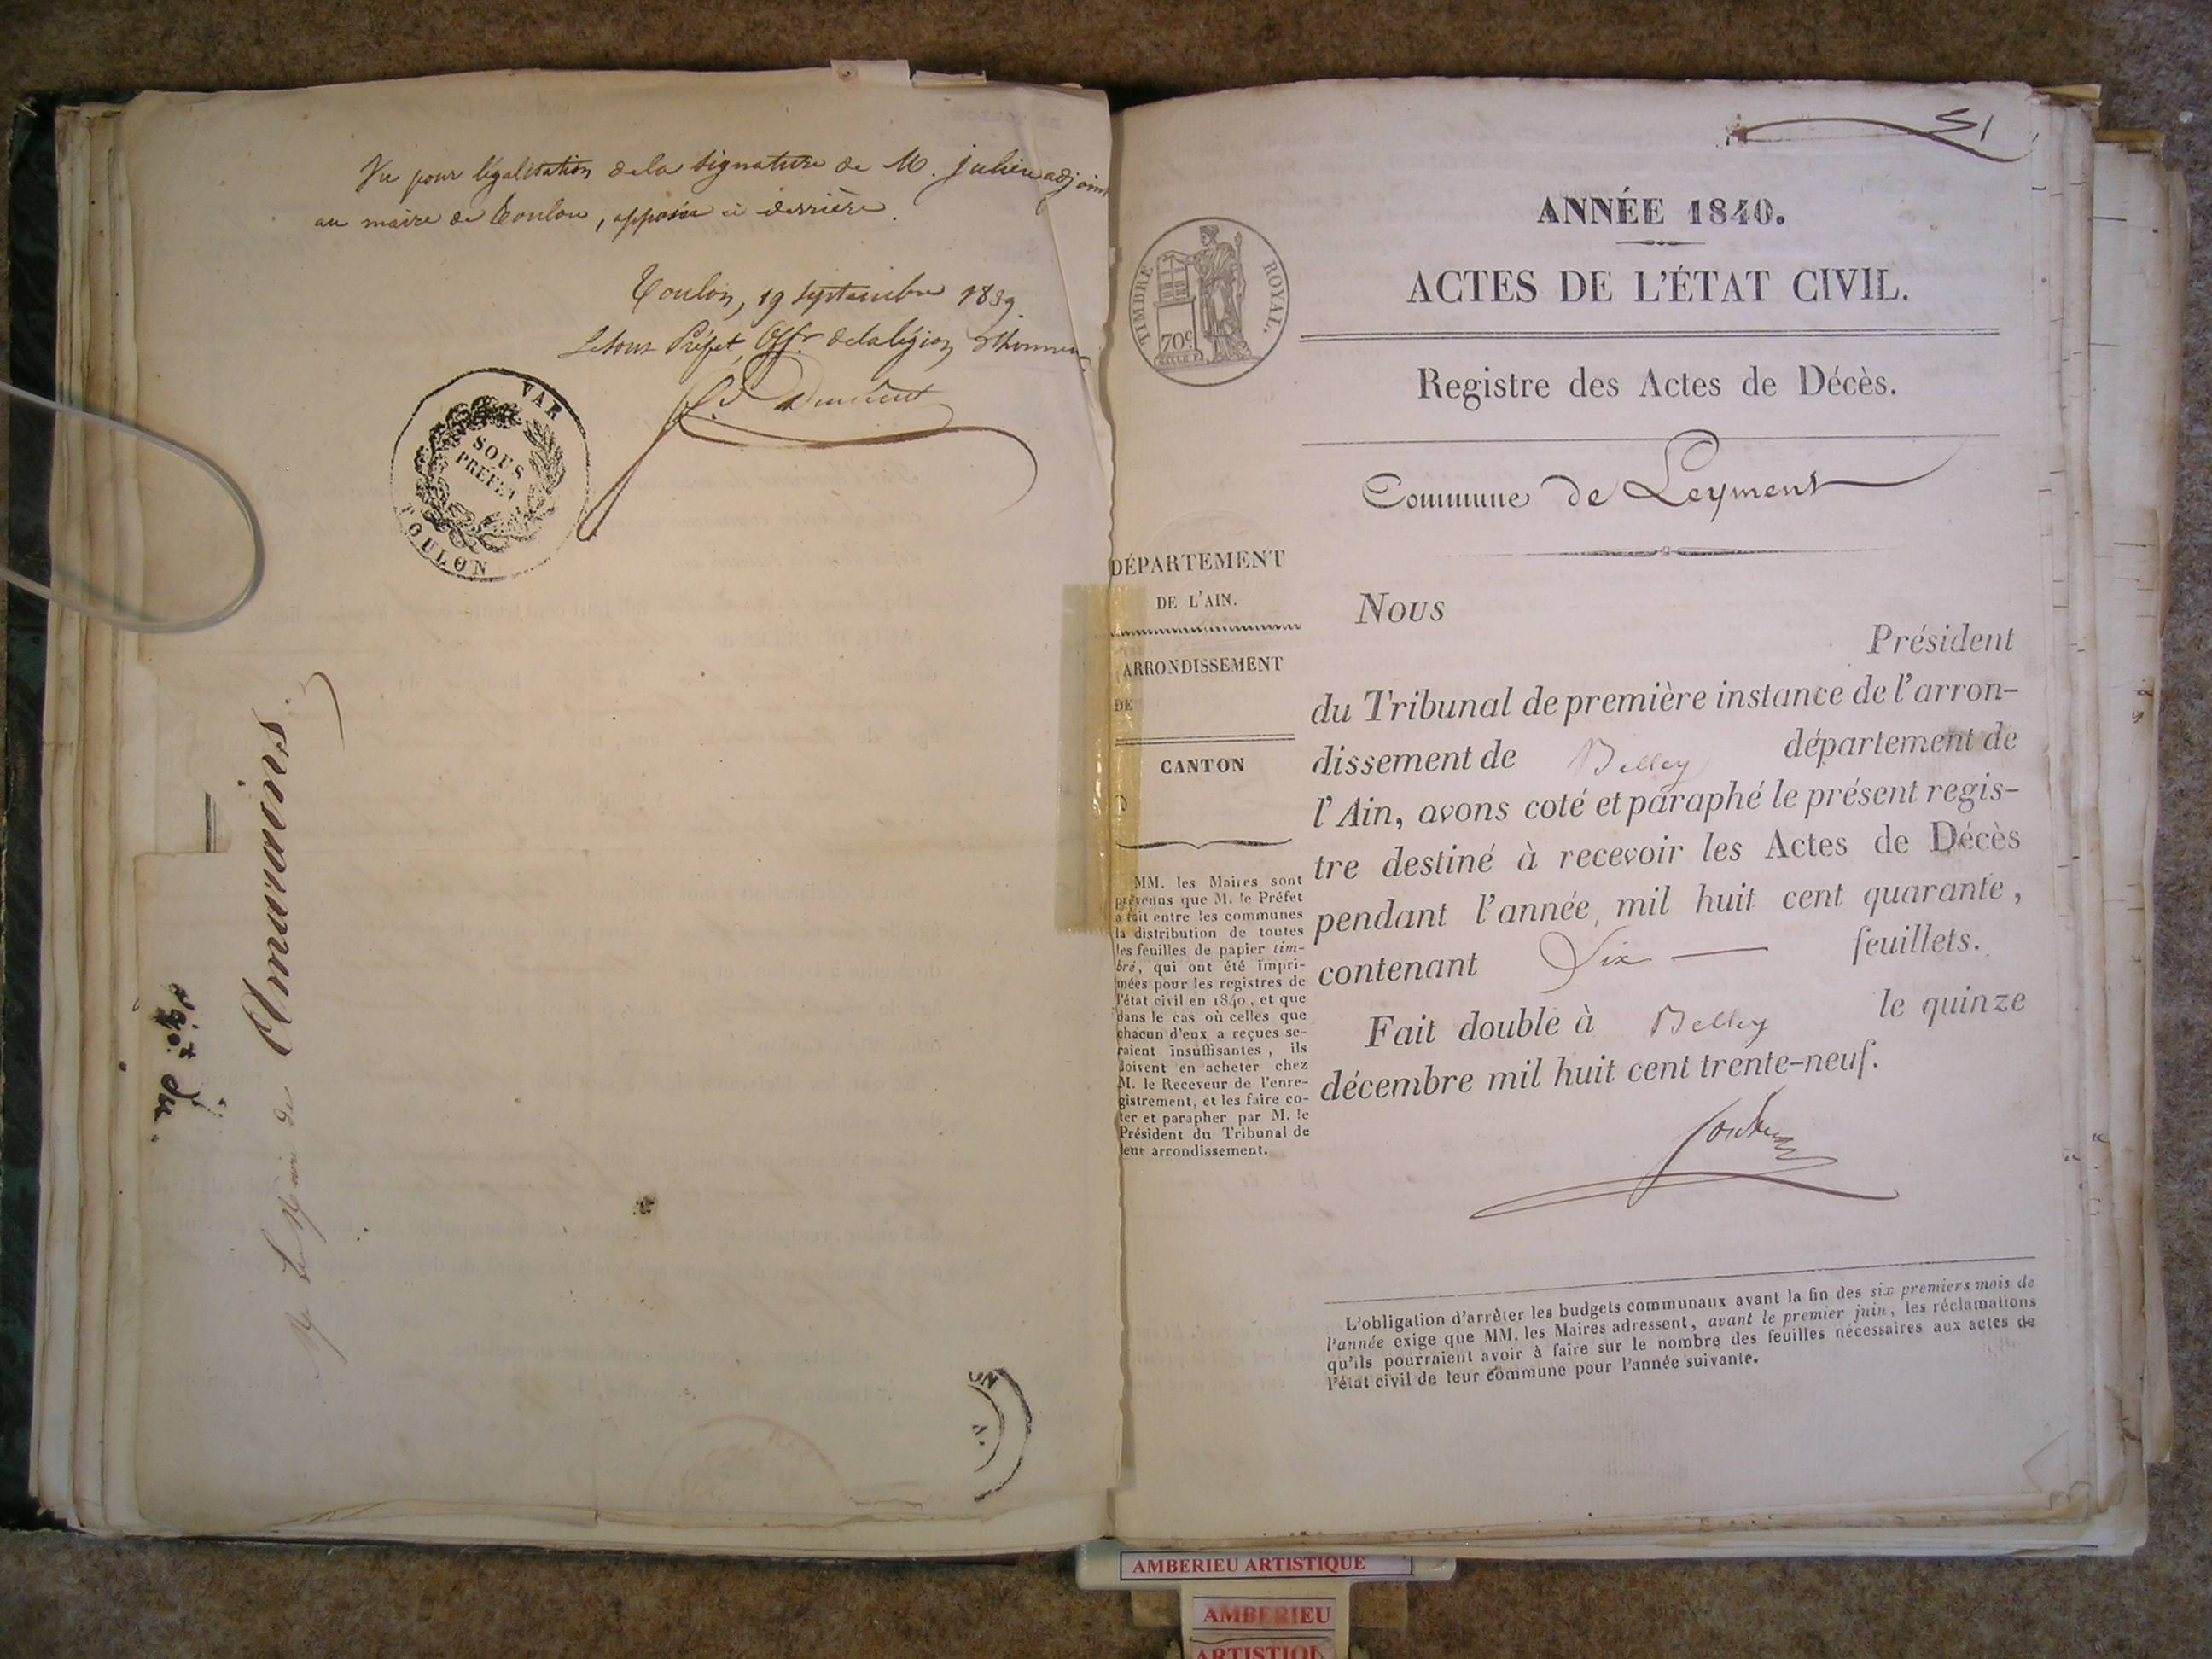 Vu pour légalisation de la signature de M. Julien adjoint
au maire de Toulon, apposée ci derrière.
Toulon, 19 septembre 1839.
Le Sous Préfet, Offr de la légion d'honneur
VAR
SOUS
PRÉFET
TOULON
M. le Maire de Amarains
ON
51
ANNÉE 1840.
ACTES DE L'ÉTAT CIVIL.
TIMBRE ROYAL.
70c
Registre des Actes de Décès.
Commune de Leyment
DÉPARTEMENT
DE L'AIN.
ARRONDISSEMENT
DE
CANTON
D
MM. les Maires sont
prévenus que M. le Préfet
a fait entre les communes
la distribution de toutes
les feuilles de papier tim-
bré, qui ont été impri-
mées pour les registres de
l'état civil en 1840, et que
dans le cas où celles que
chacun d'eux a reçues se-
raient insuffisantes, ils
doivent en acheter chez
M. le Receveur de l'enre-
gistrement, et les faire co-
ter et parapher par M. le
Président du Tribunal de
leur arrondissement.
Nous
Président
du Tribunal de première instance de l'arron-
dissement de Belley département de
l'Ain, avons coté et paraphé le présent regis-
tre destiné à recevoir les Actes de Décès
pendant l'année mil huit cent quarante,
contenant Six feuillets.
Fait double à Belley le quinze
décembre mil huit cent trente-neuf.
L'obligation d'arrêter les budgets communaux avant la fin des six premiers mois de
l'année exige que MM. les Maires adressent, avant le premier juin, les réclamations
qu'ils pourraient avoir à faire sur le nombre des feuilles nécessaires aux actes de
l'état civil de leur commune pour l'année suivante.
AMBERIEU ARTISTIQUE
AMBERIEU
ARTISTIQUE